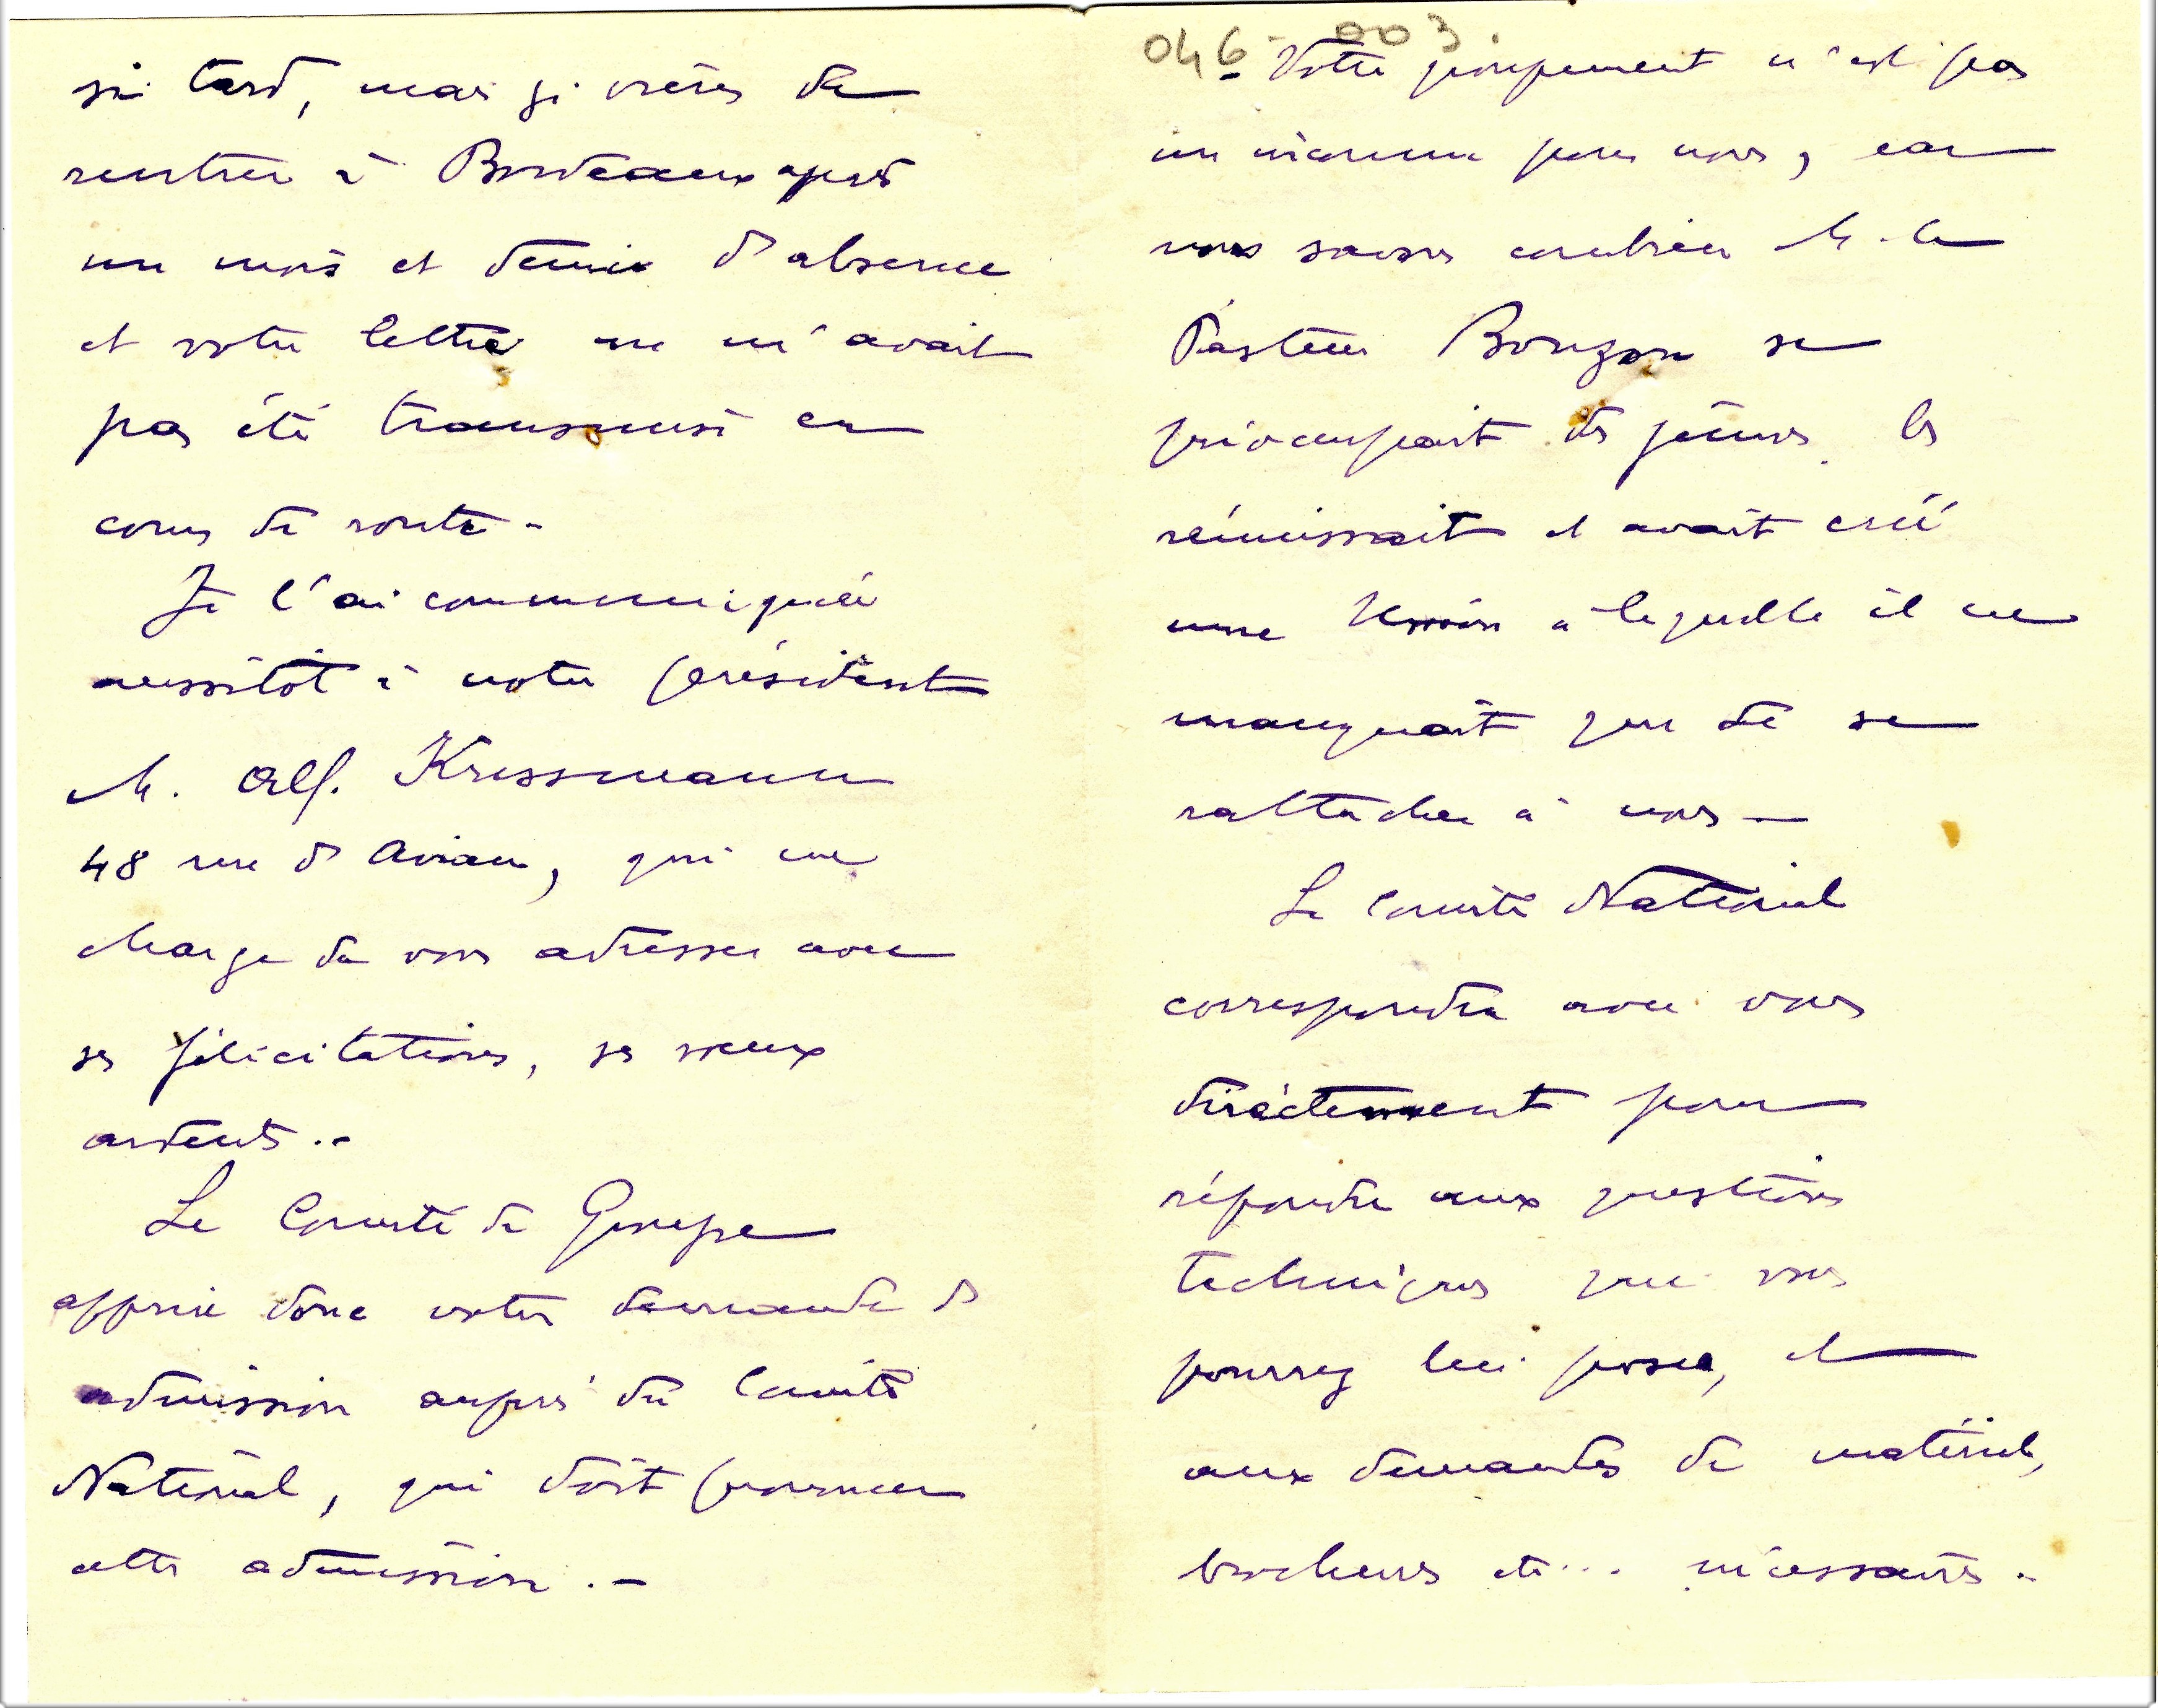 si tard, mais je viens de
rentrer à Bordeaux après
un mois et demie d'absence
et votre lettre ne m'avait
pas été transmise en
cours de route -
Je l'ai communiquée
aussitôt à notre président
M. Alf. Kressmann
48 rue d'Aviau, qui me
charge de vous adresser avec
ses félicitations, ses vœux
ardents . -
Le Comité de Groupe
appuie donc votre demande d'
admission auprès du Comité
National, qui doit prononcer
cette admission . -
046-003.
- Votre groupement n'est pas
un inconnu pour nous, car
nous savons combien M. le
Pasteur Bouzon se
préoccupait des jeunes, les
réunissait et avait créé
une Union à laquelle il ne
manquait que de se
rattacher à nous -
Le Comité National
correspondra avec vous
directement pour
répondre aux questions
techniques que vous
pourrez lui poser, et
aux demandes de matériel,
brochures etc... nécessaires -